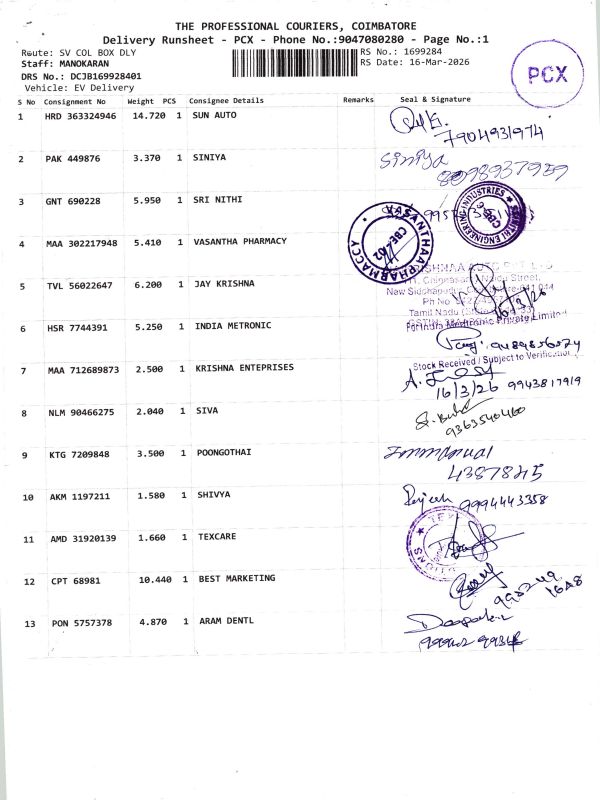 THE PROFESSIONAL COURIERS, COIMBATORE
Delivery Runsheet - PCX - Phone No.:9047080280 - Page No.:1
Route: SV COL BOX DLY
RS No.: 1699284
Staff: MANOKARAN
RS Date: 16-Mar-2026
DRS No.: DCJB169928401
Vehicle: EV Delivery
PCX
S No Consignment No Weight PCS Consignee Details Remarks Seal & Signature
1 HRD 363324946 14.720 1 SUN AUTO
7904931974
2 PAK 449876 3.370 1 SINIYA
Siniya
8098937959
3 GNT 690228 5.950 1 SRI NITHI
4 MAA 302217948 5.410 1 VASANTHA PHARMACY
VASANTHAA PHARMACCY
5 TVL 56022647 6.200 1 JAY KRISHNA
Street,
Tamil Nadu
16/3/26
6 HSR 7744391 5.250 1 INDIA METRONIC
For India Metronic Private Limited
Stock Received / Subject to Verification
7 MAA 712689873 2.500 1 KRISHNA ENTEPRISES
16/3/26 9943817919
8 NLM 90466275 2.040 1 SIVA
9363540460
9 KTG 7209848 3.500 1 POONGOTHAI
4387845
10 AKM 1197211 1.580 1 SHIVYA
9994443358
11 AMD 31920139 1.660 1 TEXCARE
12 CPT 68981 10.440 1 BEST MARKETING
13 PON 5757378 4.870 1 ARAM DENTL